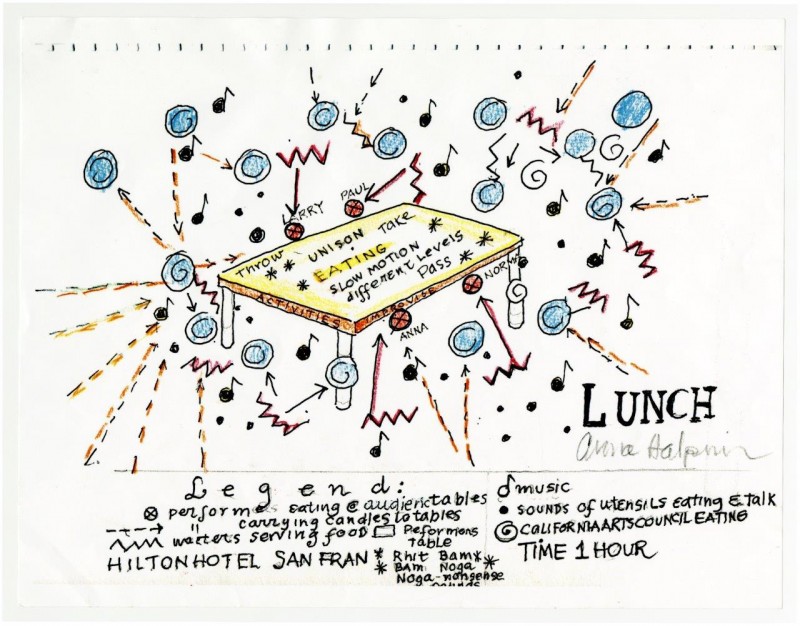 LARRY
PAUL
Throw UNISON Take
EATING
SLOW MOTION
different Levels
Pass
NORMA
ACTIVITIES IMPROVISE
ANNA
LUNCH
Anna Halprin
Legend:
performers eating @ audience tables
" carrying candles to tables
waiters serving food
Performers
Table
HILTON HOTEL SAN FRAN
* Rhit Bam *
* BAM Noga *
Noga-nonsense
sounds
music
sounds of utensils eating & talk
CALIFORNIA ARTS COUNCIL EATING
TIME 1 HOUR